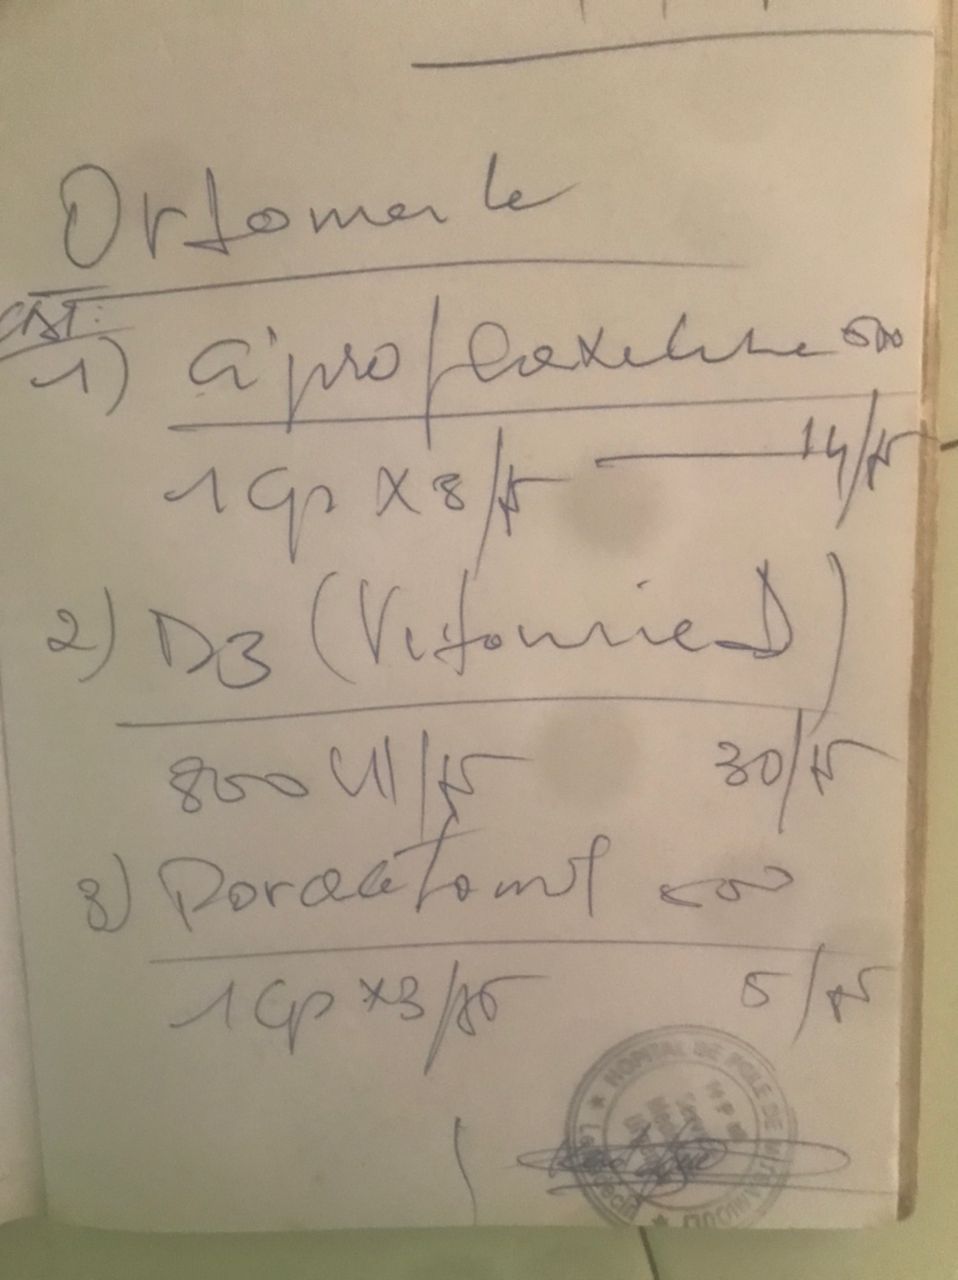 Ordonnance
CAT:
1) Ciprofloxacine 500
1 Cp X 3/jr 14/jr
2) D3 (Vitamine D)
800 UI/jr 30/jr
3) Paracetamol 500
1 Cp x3/jr 5/jr
HOPITAL DE
Le Médecin